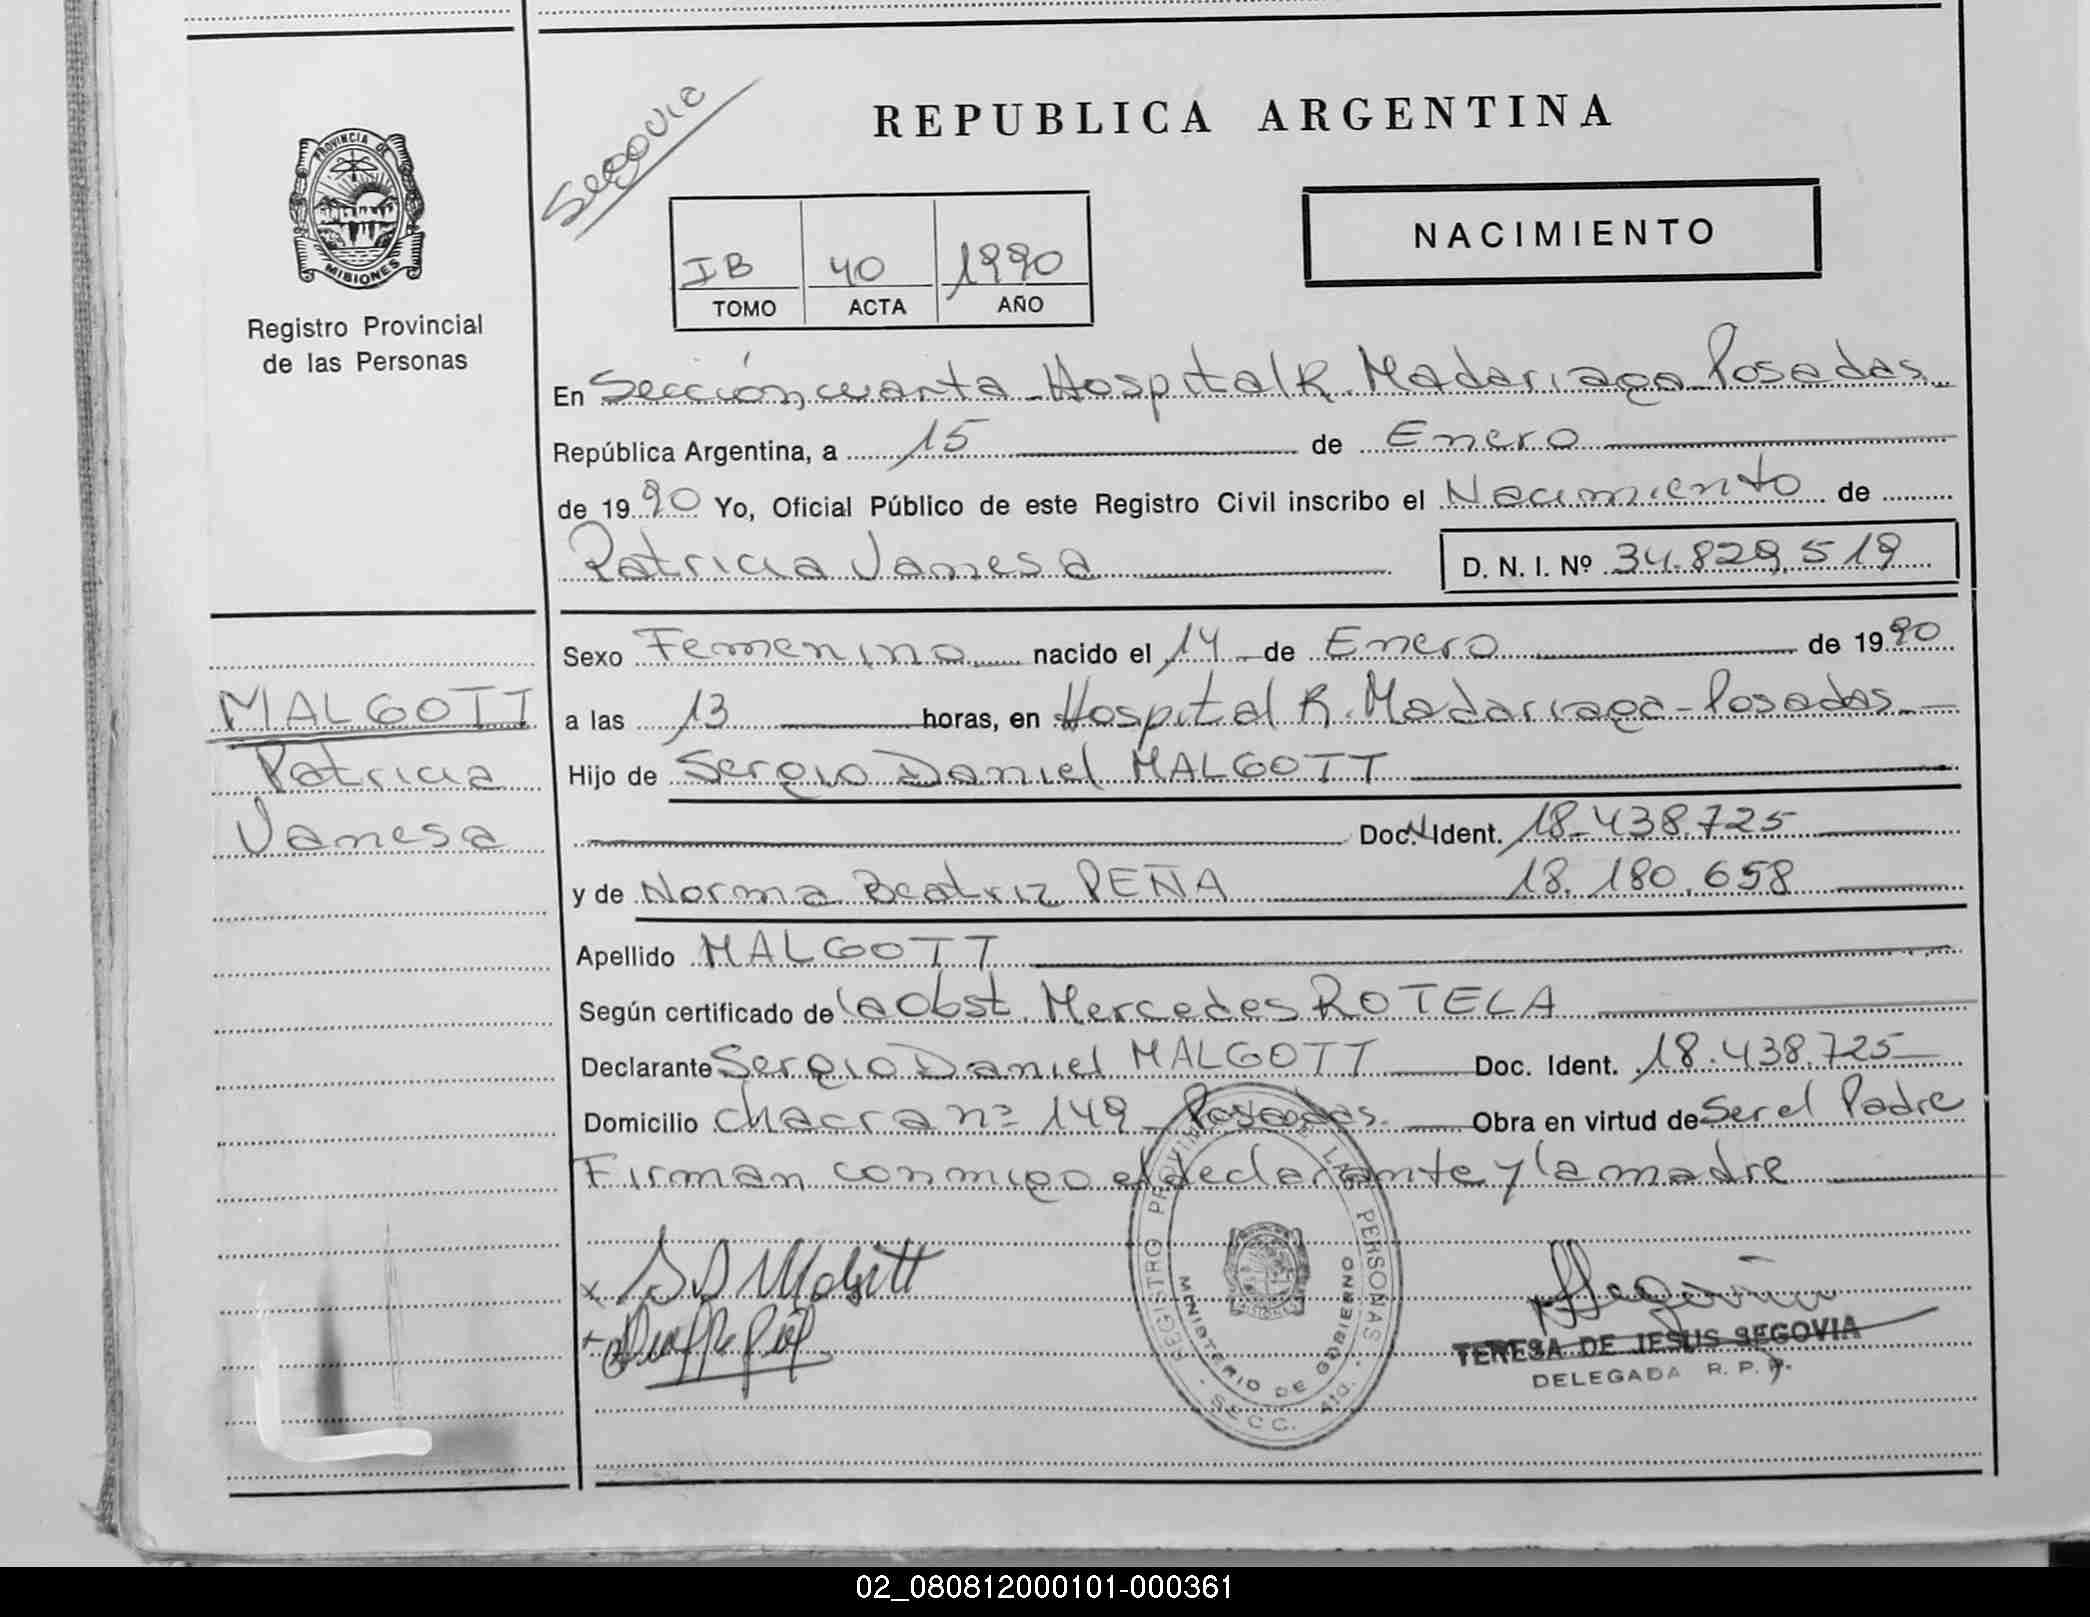 Segovia
REPUBLICA ARGENTINA
PROVINCIA DE
MISIONES
Registro Provincial
de las Personas
NACIMIENTO
IB 40 1990
TOMO ACTA AÑO
En Sección cuarta - Hospital R. Madariaga Posadas
República Argentina, a 15 de Enero
de 1990 Yo, Oficial Público de este Registro Civil inscribo el Nacimiento de
Patricia Vanesa D. N. I. Nº 34.829.519
MALGOTT
Patricia
Vanesa
Sexo Femenino nacido el 14 de Enero de 1990
a las 13 horas, en Hospital R. Madariaga - Posadas
Hijo de Sergio Daniel MALGOTT
Doc. Ident. 18.438.725
y de Norma Beatriz PEÑA 18.180.658
Apellido MALGOTT
Según certificado de la Obst. Mercedes ROTELA
Declarante Sergio Daniel MALGOTT Doc. Ident. 18.438.725
Domicilio chacra nº 149 - Posadas. Obra en virtud de Ser el Padre
Firman conmigo el declarante y la madre
REGISTRO PROVINCIAL DE LAS PERSONAS
MINISTERIO DE GOBIERNO
SECC. 4ta.
TERESA DE JESUS SEGOVIA
DELEGADA R. P. P.
02_080812000101-000361